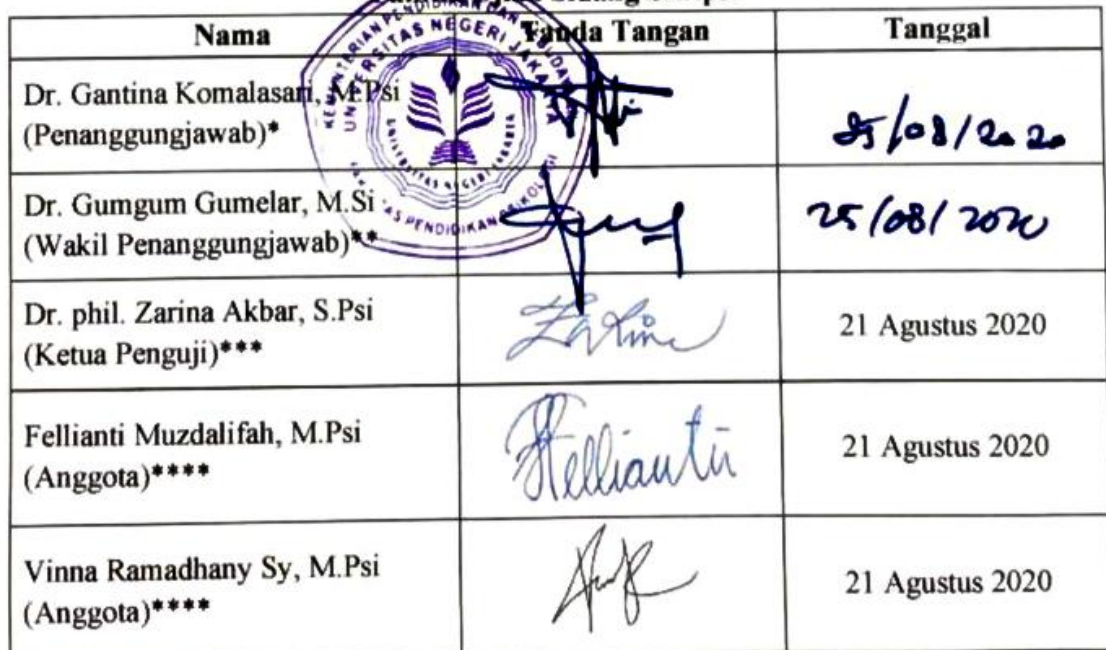 Nama
Tanda Tangan
Tanggal
Dr. Gantina Komalasari, M.Psi
(Penanggungjawab)*
25/08/2020
Dr. Gumgum Gumelar, M.Si
(Wakil Penanggungjawab)**
25/08/2020
Dr. phil. Zarina Akbar, S.Psi
(Ketua Penguji)***
21 Agustus 2020
Fellianti Muzdalifah, M.Psi
(Anggota)****
Fellianti
21 Agustus 2020
Vinna Ramadhany Sy, M.Psi
(Anggota)****
21 Agustus 2020
UNIVERSITAS NEGERI JAKARTA
UNIVERSITAS NEGERI JAKARTA